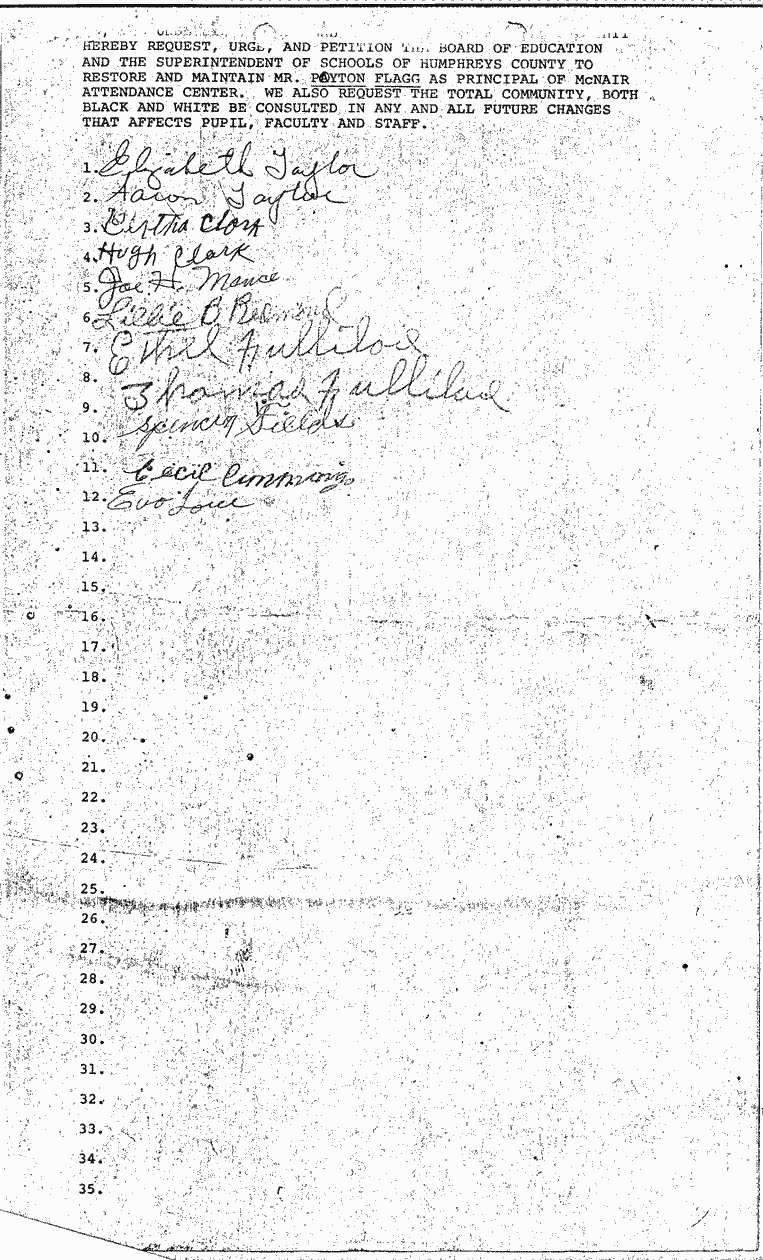 HEREBY REQUEST, URGE, AND PETITION THE BOARD OF EDUCATION
AND THE SUPERINTENDENT OF SCHOOLS OF HUMPHREYS COUNTY TO
RESTORE AND MAINTAIN MR. PAYTON FLAGG AS PRINCIPAL OF McNAIR
ATTENDANCE CENTER. WE ALSO REQUEST THE TOTAL COMMUNITY, BOTH
BLACK AND WHITE BE CONSULTED IN ANY AND ALL FUTURE CHANGES
THAT AFFECTS PUPIL, FACULTY AND STAFF.
1. Elizabeth Taylor
2. Aaron Taylor
3. Bertha Clark
4. Hugh Clark
5. Joe H. Mance
6. Lillie B Redmond
7. Ethel Fullilove
8. Thomas Fullilove
9.
10. Fields
11. Cecil Cummings
12. Eva
13.
14.
15.
16.
17.
18.
19.
20.
21.
22.
23.
24.
25.
26.
27.
28.
29.
30.
31.
32.
33.
34.
35.